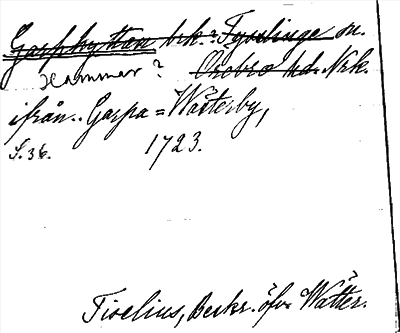 Garphyttan brk. Tysslinge sn.
Hammar? Örebro hd. Nrk.
ifrån.. Garpa = Wästerby,
S. 36. 1723.
Tiselius, Beskr. öfv. Wätter.